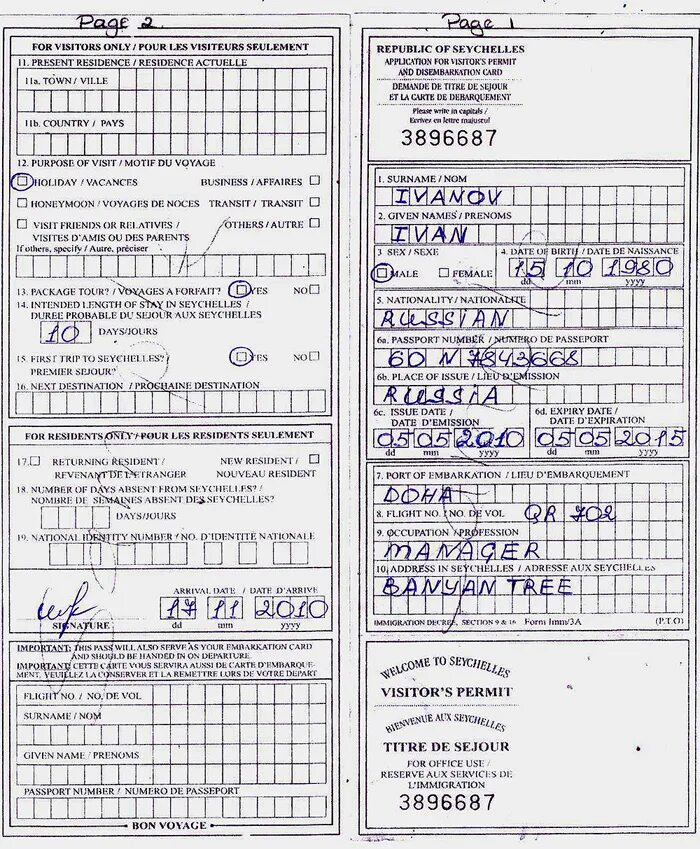 Page 2
FOR VISITORS ONLY / POUR LES VISITEURS SEULEMENT
11. PRESENT RESIDENCE / RESIDENCE ACTUELLE
11a. TOWN / VILLE
11b. COUNTRY / PAYS
12. PURPOSE OF VISIT / MOTIF DU VOYAGE
HOLIDAY / VACANCES BUSINESS / AFFAIRES
HONEYMOON / VOYAGES DE NOCES TRANSIT / TRANSIT
VISIT FRIENDS OR RELATIVES / OTHERS / AUTRE
VISITES D'AMIS OU DES PARENTS
If others, specify / Autre, préciser
13. PACKAGE TOUR? / VOYAGES A FORFAIT? YES NO
14. INTENDED LENGTH OF STAY IN SEYCHELLES /
DUREE PROBABLE DU SEJOUR AUX SEYCHELLES
10 DAYS/JOURS
15. FIRST TRIP TO SEYCHELLES? / YES NO
PREMIER SEJOUR?
16. NEXT DESTINATION / PROCHAINE DESTINATION
FOR RESIDENTS ONLY / POUR LES RESIDENTS SEULEMENT
17. RETURNING RESIDENT / NEW RESIDENT /
REVENANT DE L'ETRANGER NOUVEAU RESIDENT
18. NUMBER OF DAYS ABSENT FROM SEYCHELLES? /
NOMBRE DE SEMAINES ABSENT DES SEYCHELLES?
DAYS/JOURS
19. NATIONAL IDENTITY NUMBER / NO. D'IDENTITE NATIONALE
ARRIVAL DATE / DATE D'ARRIVE
17 11 2010
SIGNATURE dd mm yyyy
IMPORTANT: THIS PASS WILL ALSO SERVE AS YOUR EMBARKATION CARD
AND SHOULD BE HANDED IN ON DEPARTURE.
IMPORTANT: CETTE CARTE VOUS SERVIRA AUSSI DE CARTE D'EMBARQUE-
MENT, VEUILLEZ LA CONSERVER ET LA REMETTRE LORS DE VOTRE DEPART
FLIGHT NO. / NO. DE VOL
SURNAME / NOM
GIVEN NAME / PRENOMS
PASSPORT NUMBER / NUMERO DE PASSEPORT
BON VOYAGE
Page 1
REPUBLIC OF SEYCHELLES
APPLICATION FOR VISITOR'S PERMIT
AND DISEMBARKATION CARD
DEMANDE DE TITRE DE SEJOUR
ET LA CARTE DE DEBARQUEMENT
Please write in capitals /
Ecrivez en lettre majuscul
3896687
1. SURNAME / NOM
IVANOV
2. GIVEN NAMES / PRENOMS
IVAN
3 SEX / SEXE 4. DATE OF BIRTH / DATE DE NAISSANCE
MALE FEMALE 15 10 1980
dd mm yyyy
5. NATIONALITY / NATIONALITE
RUSSIAN
6a. PASSPORT NUMBER / NUMERO DE PASSEPORT
60 N 7843668
6b. PLACE OF ISSUE / LIEU D'EMISSION
RUSSIA
6c. ISSUE DATE / 6d. EXPIRY DATE /
DATE D'EMISSION DATE D'EXPIRATION
05 05 2010 05 05 2015
dd mm yyyy dd mm yyyy
7. PORT OF EMBARKATION / LIEU D'EMBARQUEMENT
DOHA
8. FLIGHT NO. / NO. DE VOL QR 702
9. OCCUPATION / PROFESSION
MANAGER
10. ADDRESS IN SEYCHELLES / ADRESSE AUX SEYCHELLES
BANYAN TREE
IMMIGRATION DECREE, SECTION 9 & 16 Form Imm/3A (P.T.O)
WELCOME TO SEYCHELLES
VISITOR'S PERMIT
BIENVENUE AUX SEYCHELLES
TITRE DE SEJOUR
FOR OFFICE USE /
RESERVE AUX SERVICES DE
L'IMMIGRATION
3896687